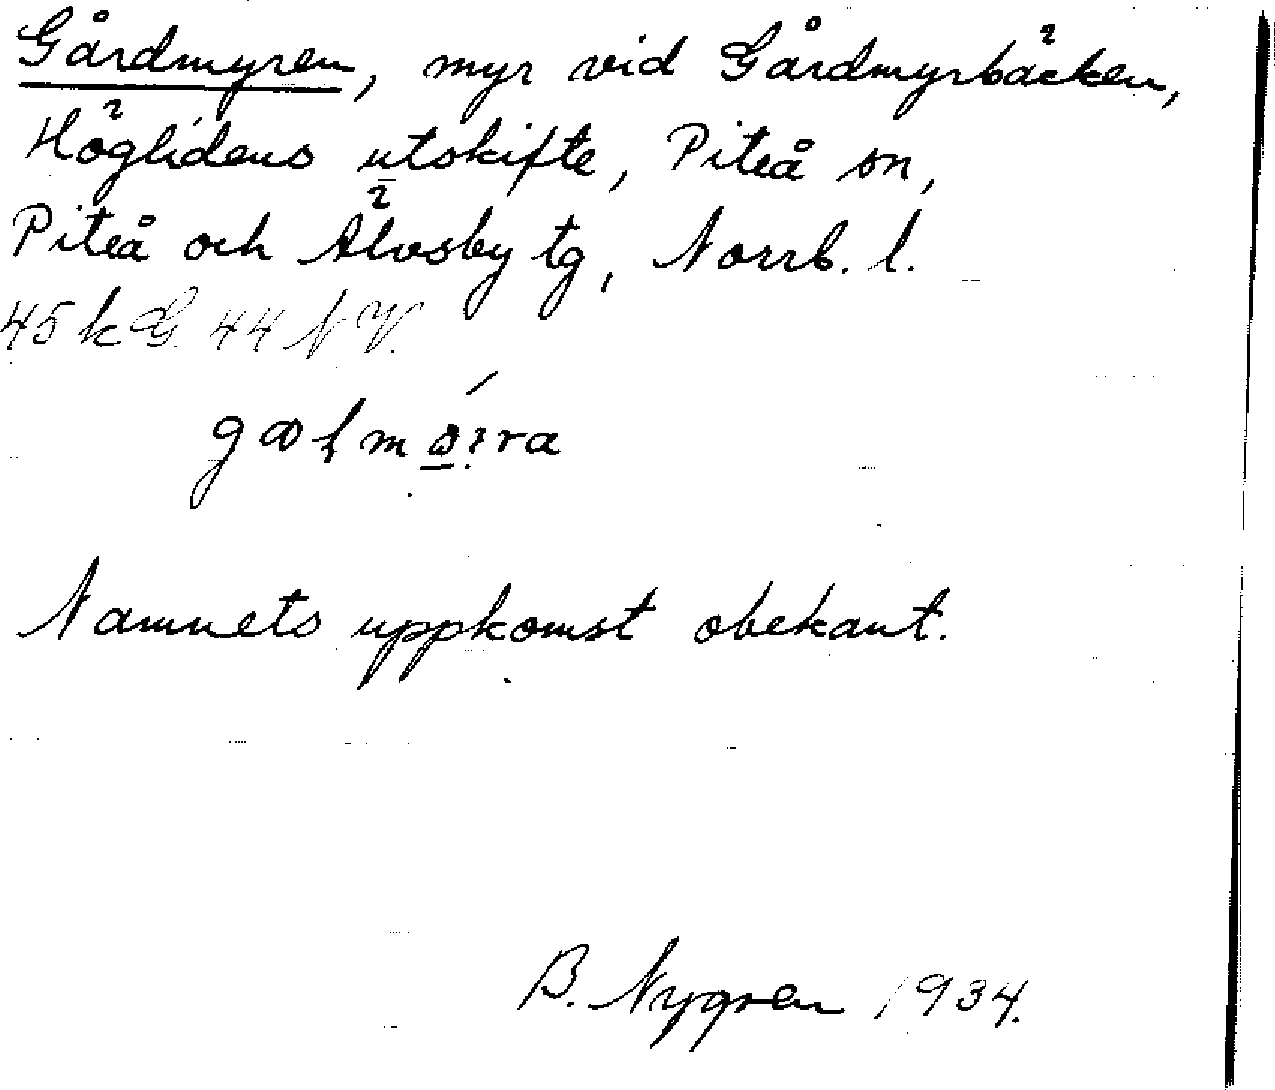 Gårdmyren, myr vid Gårdmyrbäcken,
Höglidens utskifte, Piteå sn,
Piteå och Älvsby tg, Norrb. l.
45 k G. 44 N V.
Namnets uppkomst obekant.
B. Nygren 1934.